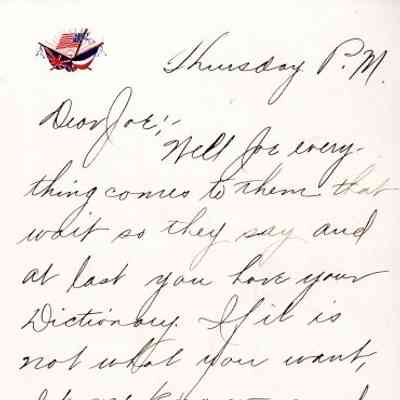 Thursday P.M.
Dear Joe;-
Well Joe every-
thing comes to them that
wait so they say and
at last you have your
Dictionary. If it is
not what you want,